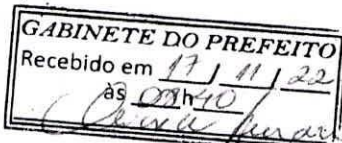 GABINETE DO PREFEITO
Recebido em 17 / 11 / 22
às 09h40